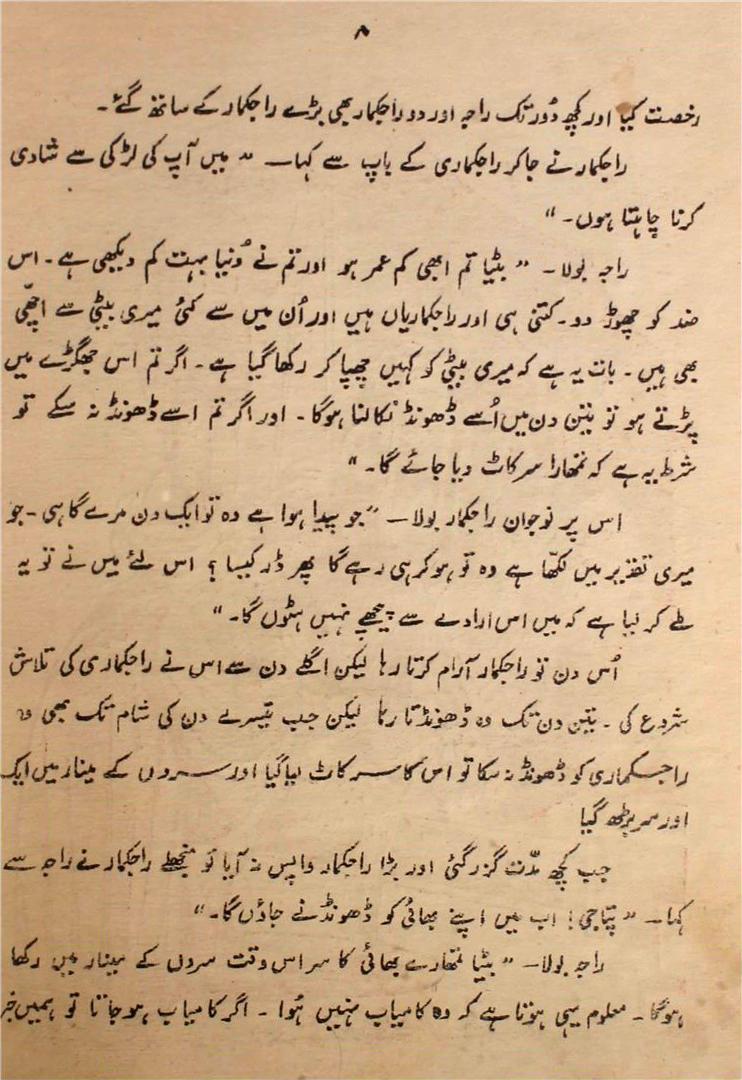 ۸
رخصت کیا اور کچھ دُور تک راجہ اور دو راجکمار بھی بڑے راجکمار کے ساتھ گئے۔
راجکمار نے جا کر راجکماری کے باپ سے کہا— ”میں آپ کی لڑکی سے شادی
کرنا چاہتا ہوں۔“
راجہ بولا— ”بٹیا تم ابھی کم عمر ہو اور تم نے دُنیا بہت کم دیکھی ہے۔ اس
ضد کو چھوڑ دو۔ کتنی ہی اور راجکماریاں ہیں اور اُن میں سے کئی میری بیٹی سے اچھّی
بھی ہیں۔ بات یہ ہے کہ میری بیٹی کو کہیں چھپا کر رکھا گیا ہے۔ اگر تم اس جھگڑے میں
پڑتے ہو تو تین دن میں اُسے ڈھونڈ نکالنا ہوگا۔ اور اگر تم اسے ڈھونڈ نہ سکے تو
شرط یہ ہے کہ تمھارا سر کاٹ دیا جائے گا۔“
اس پر نوجوان راجکمار بولا— ”جو پیدا ہوا ہے وہ تو ایک دن مرے گا ہی۔ جو
میری تقدیر میں لکھّا ہے وہ تو ہو کر ہی رہے گا پھر ڈر کیسا؟ اس لئے میں نے تو یہ
طے کر لیا ہے کہ میں اس ارادے سے پیچھے نہیں ہٹوں گا۔“
اُس دن تو راجکمار آرام کرتا رہا لیکن اگلے دن سے اس نے راجکماری کی تلاش
شروع کی۔ تین دن تک وہ ڈھونڈتا رہا لیکن جب تیسرے دن کی شام تک بھی وہ
راجکماری کو ڈھونڈ نہ سکا تو اس کا سر کاٹ لیا گیا اور سروں کے مینار میں ایک
اور سر بڑھ گیا
جب کچھ مدّت گزر گئی اور بڑا راجکمار واپس نہ آیا تو منجھلے راجکمار نے راجہ سے
کہا— ”پتاجی! اب میں اپنے بھائی کو ڈھونڈنے جاؤں گا۔“
راجہ بولا— ”بٹیا تمھارے بھائی کا سر اس وقت سروں کے مینار میں رکھا
ہوگا۔ معلوم یہی ہوتا ہے کہ وہ کامیاب نہیں ہُوا۔ اگر کامیاب ہو جاتا تو ہمیں خبر